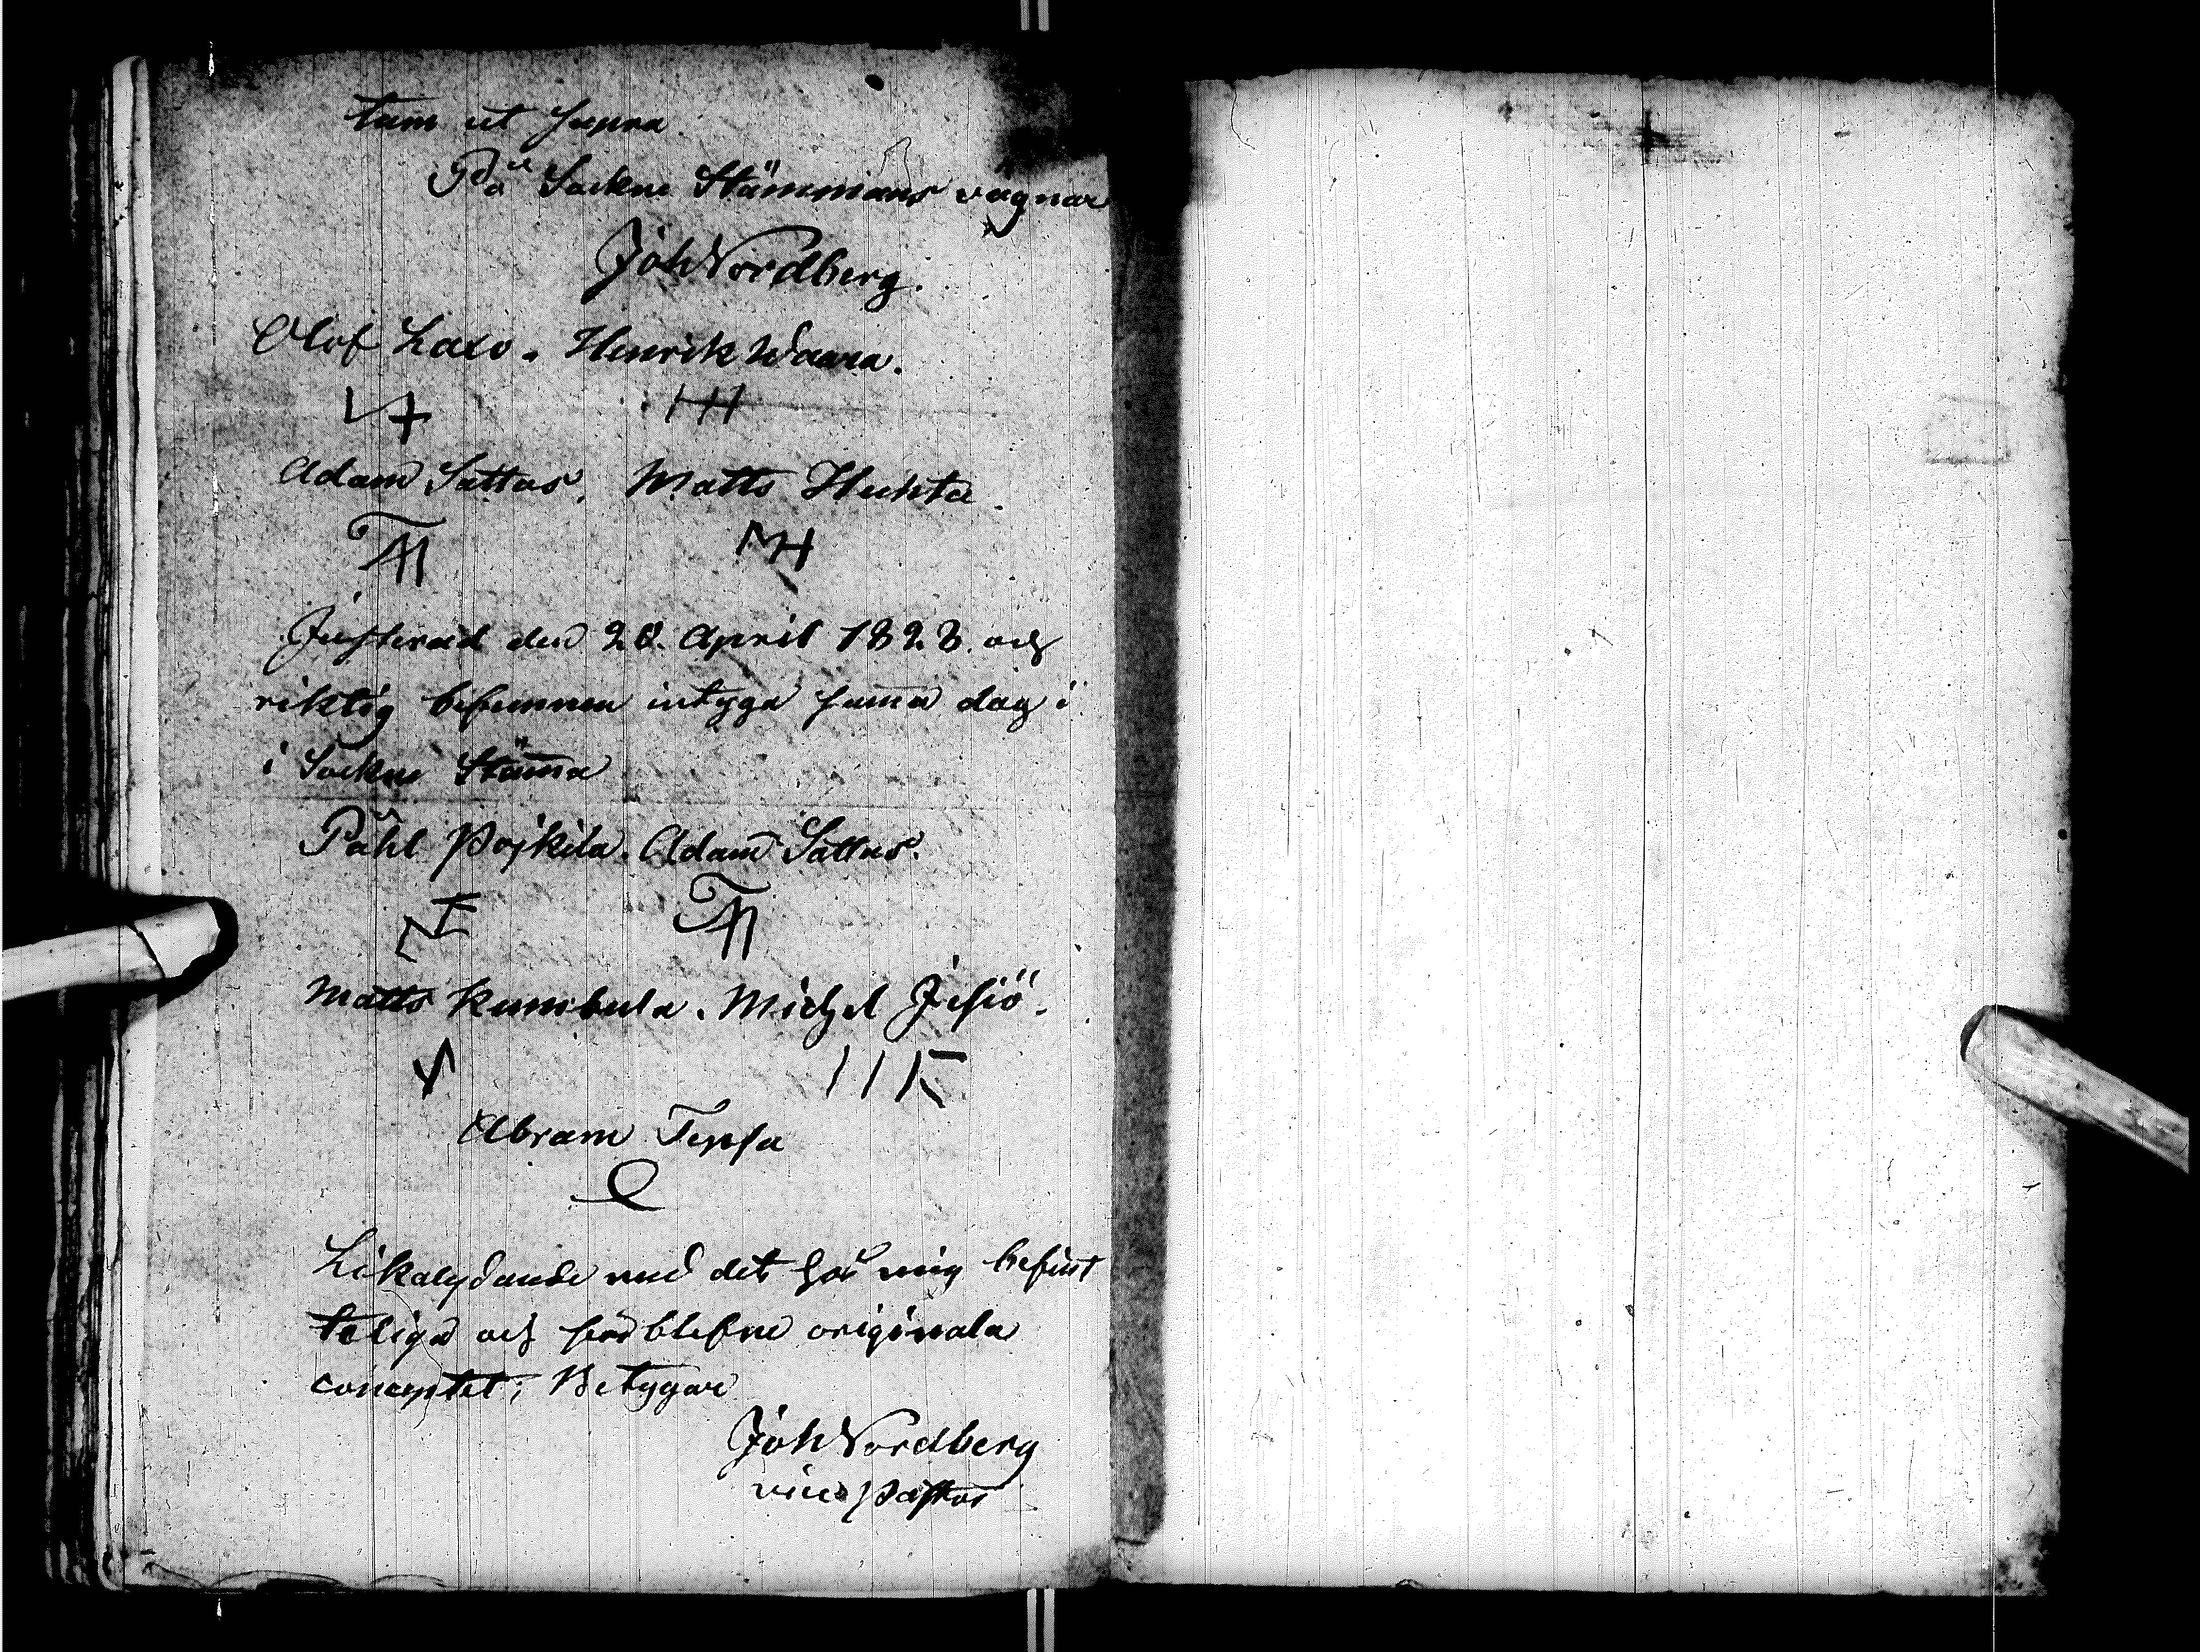 tum ut supra
På Sockne Stämmans vägnar
Joh Nordberg.
Olof Laxo. Henrik Waara.
Adam Sattas. Matts Huhta.
Justerad den 20. April 1828. och
riktig befunnen intyga sama dag i
i Sockne Stäma
Påhl Pojkila. Adam Sattas.
Matts Kumbula. Michel Jesiö.
Abram Tepsa
Likalydande med det hos mig befint
teliga och originala
conceptet; Betygar
Joh Nordberg
vice Pastor